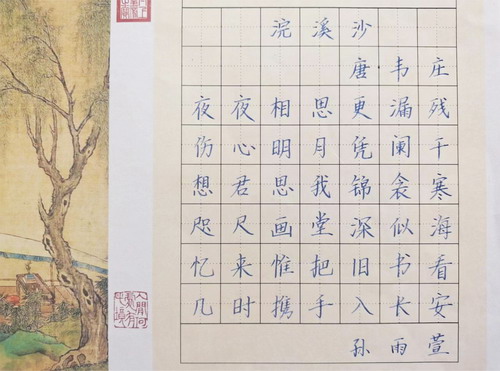 浣溪沙
唐韦庄
夜夜相思更漏残
伤心明月凭阑干
想君思我锦衾寒
咫尺画堂深似海
忆来惟把旧书看
几时携手入长安
孙雨萱